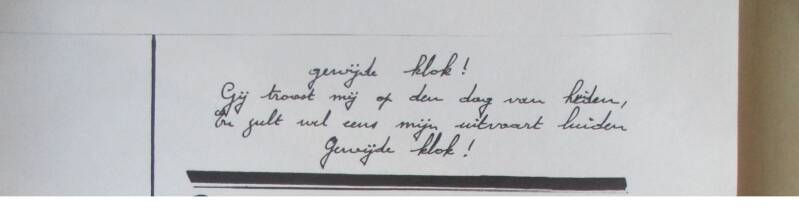 gewijde klok!
Gij troost mij op den dag van heden,
En zult wel eens mijn uitvaart luiden
Gewijde klok!